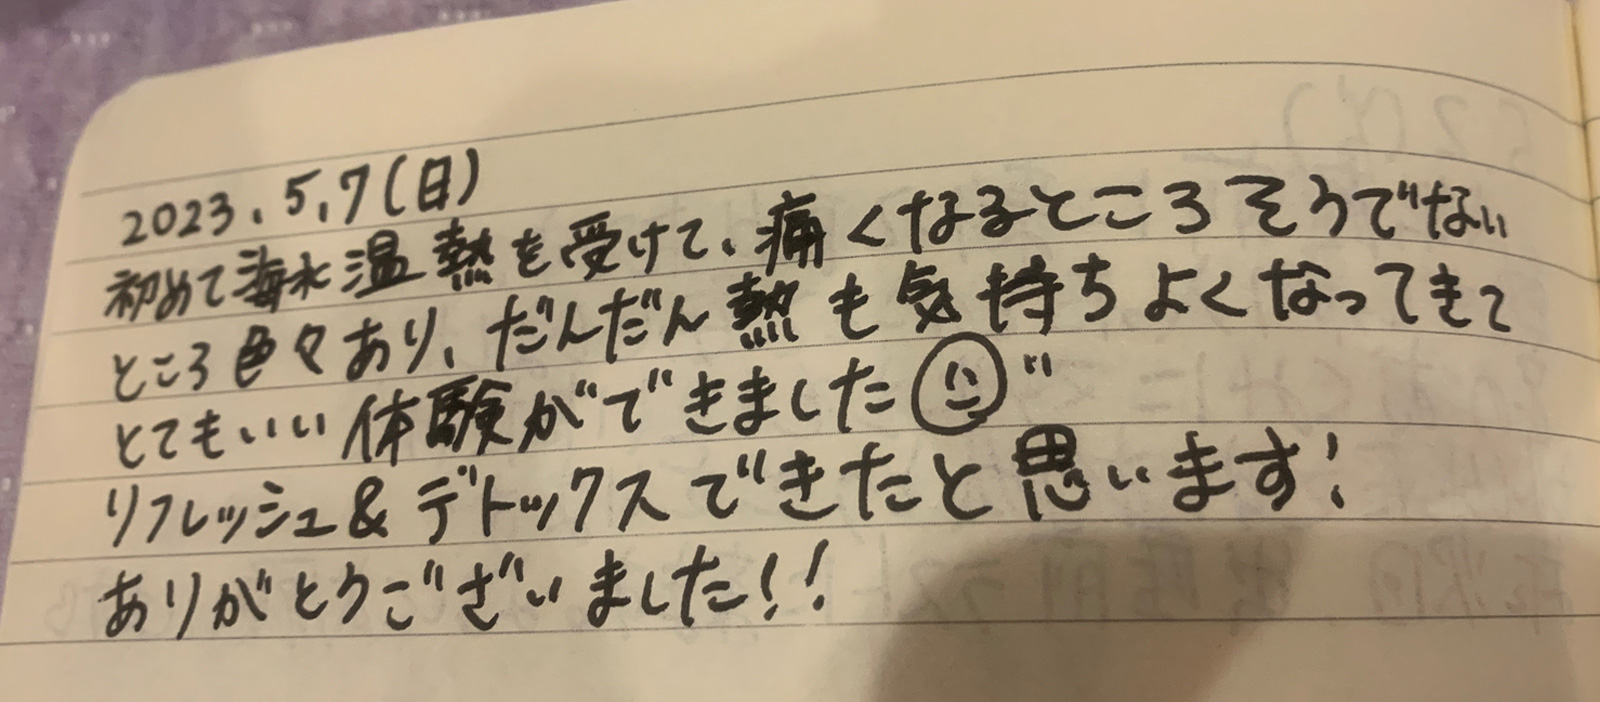 2023.5.7(日)
初めて海水温熱を受けて、痛くなるところそうでない
ところ色々あり、だんだん熱も気持ちよくなってきて
とてもいい体験ができました
リフレッシュ&デトックスできたと思います!
ありがとうございました!!